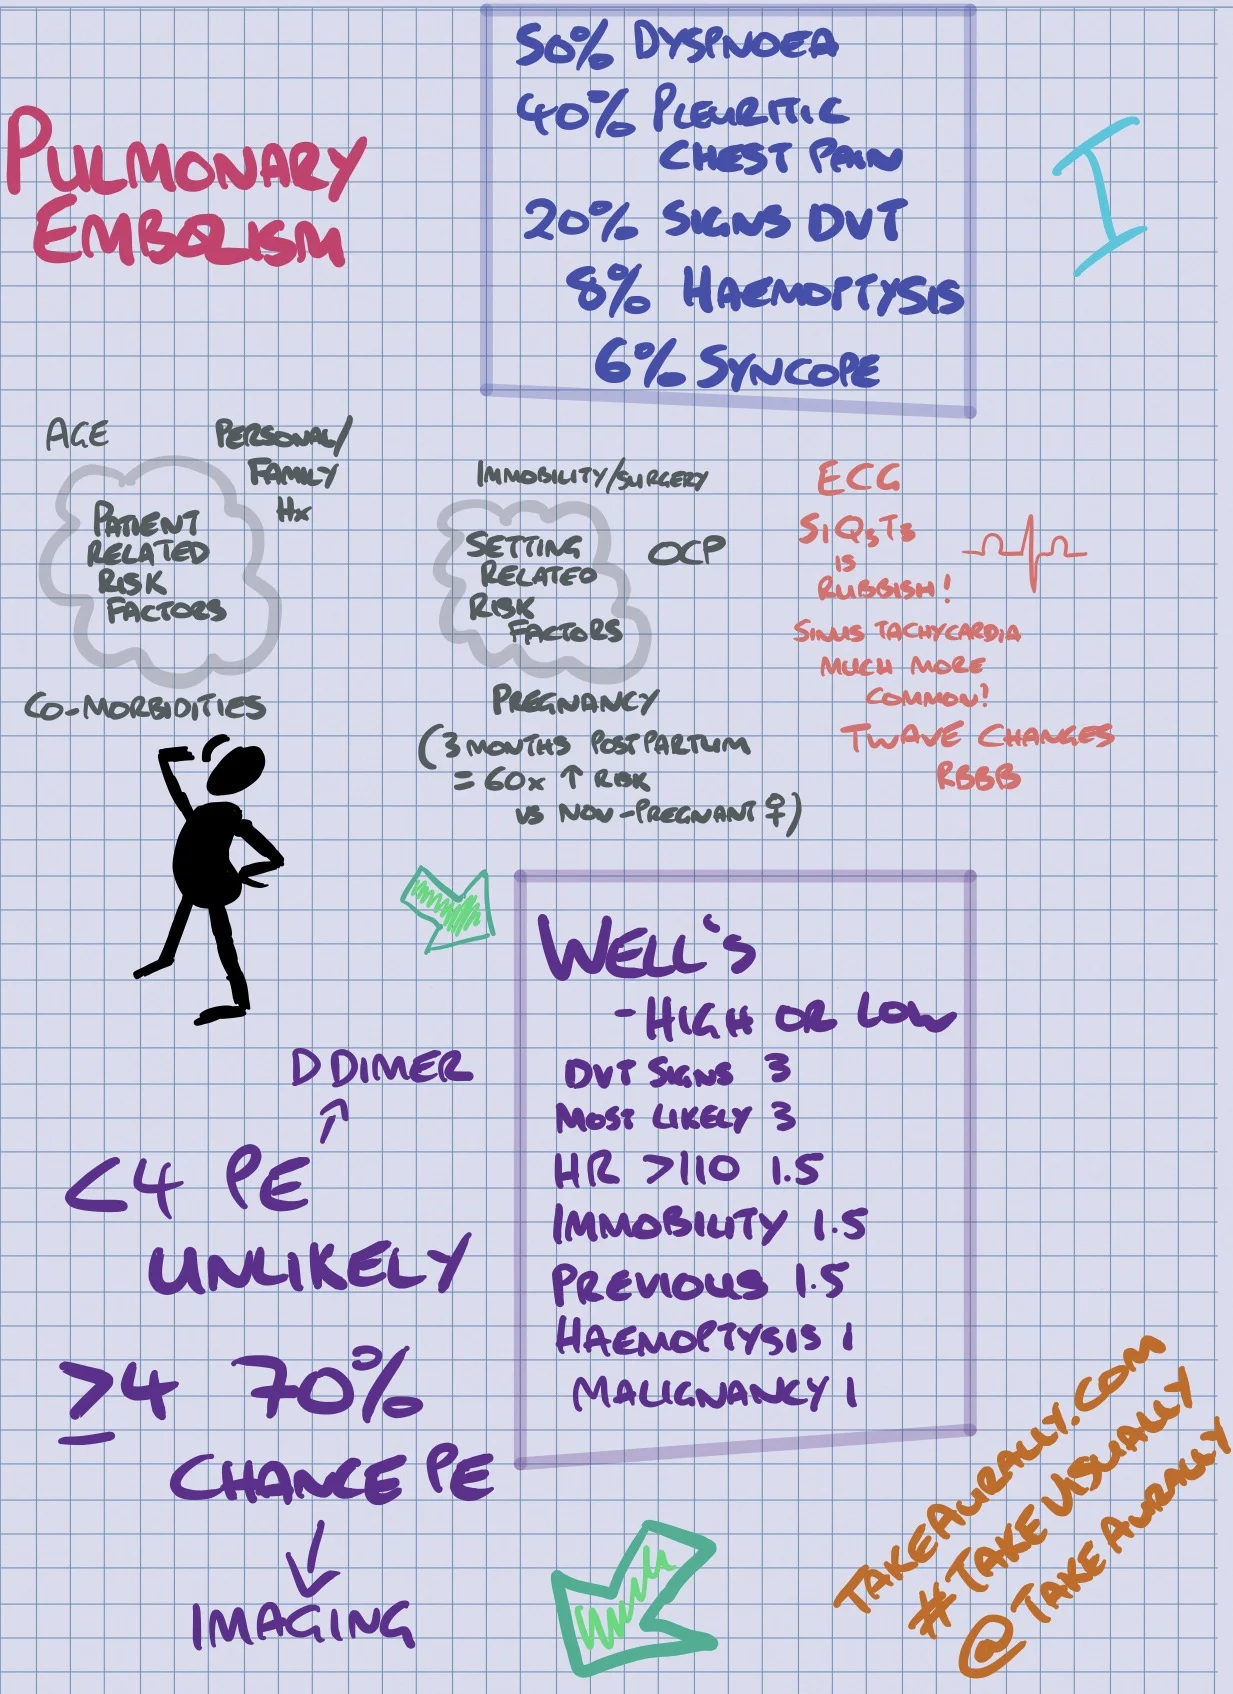 PULMONARY
EMBOLISM
50% DYSPNOEA
40% PLEURITIC
CHEST PAIN
20% SIGNS DVT
8% HAEMOPTYSIS
6% SYNCOPE
I
AGE
PERSONAL/
FAMILY
Hx
PATIENT
RELATED
RISK
FACTORS
CO-MORBIDITIES
IMMOBILITY/SURGERY
SETTING
RELATED
RISK
FACTORS
OCP
PREGNANCY
(3 MONTHS POSTPARTUM
= 60x ↑ RISK
VS NON-PREGNANT ♀)
ECG
S1Q3T3
IS
RUBBISH!
SINUS TACHYCARDIA
MUCH MORE
COMMON!
T WAVE CHANGES
RBBB
WELL'S
- HIGH OR LOW
DVT SIGNS 3
MOST LIKELY 3
HR >110 1.5
IMMOBILITY 1.5
PREVIOUS 1.5
HAEMOPTYSIS 1
MALIGNANCY 1
D DIMER
<4 PE
UNLIKELY
≥4 70%
CHANCE PE
IMAGING
TAKEAURALLY.COM
#TAKEVISUALLY
@TAKEAURALLY